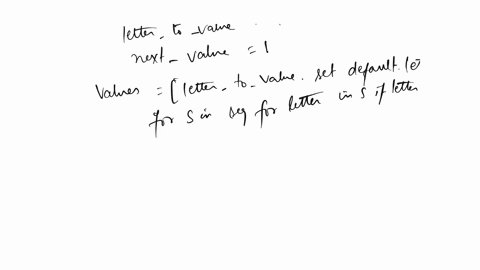 letter_to_value . .
next_value = 1
Values = [letter_to_value. set default. (e
for S in seq for letter in S if letter